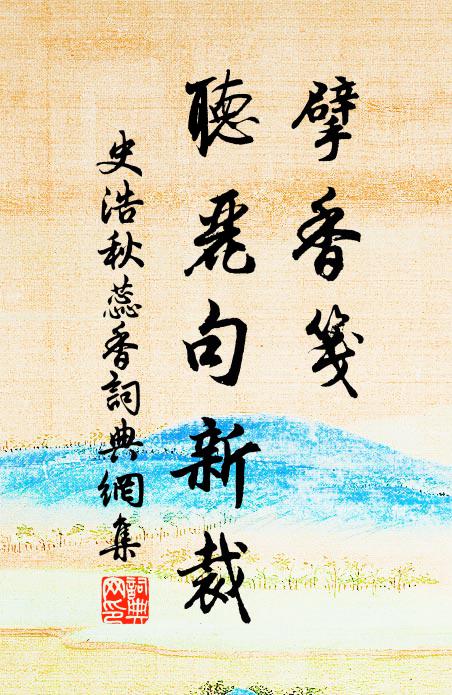 擘香箋
聽麗句新裁
史浩秋蕊香詞典網集
詞典网印